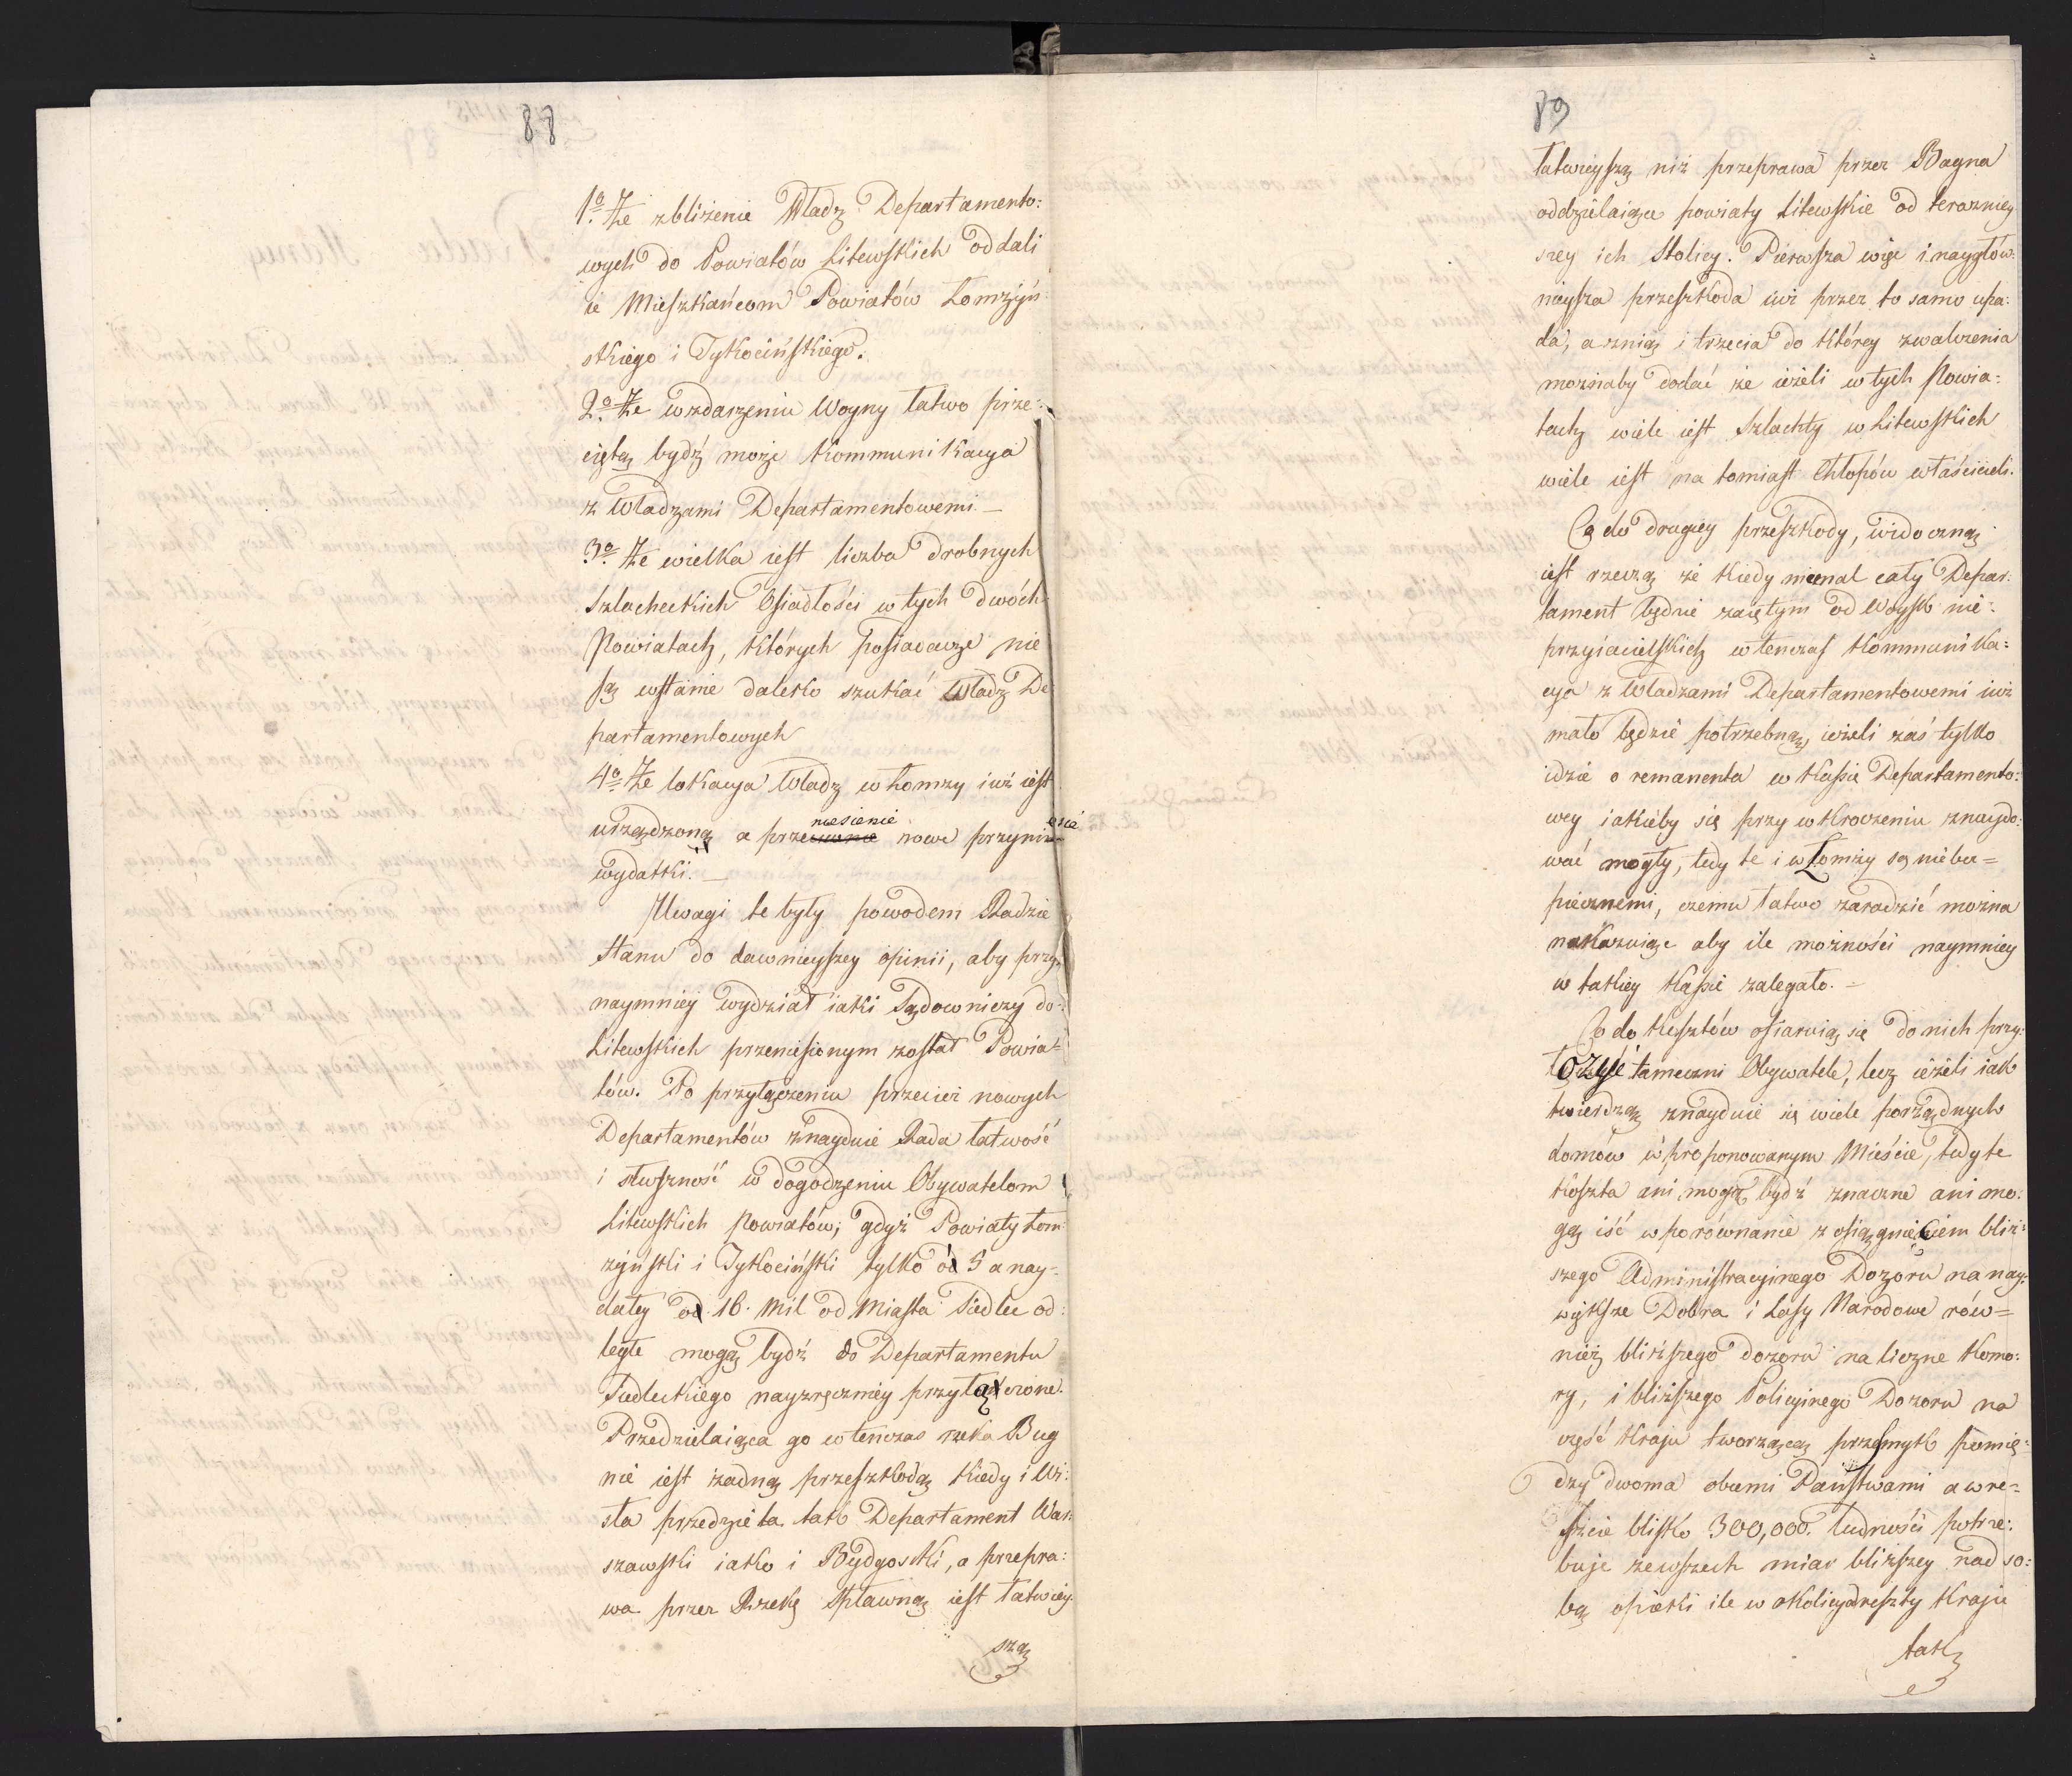 88
1o. Że zbliżenie Władz Departamento:
wych do Powiatów Litewskich oddali
ie Mieszkańcom Powiatów Łomżyń
skiego i Tykocińskiego.
2o. Że wzdarzeniu Woyny łatwo prze:
ciętą bydź może Kommunikacya
z Władzami Departamentowemi. —
3o. Że wielka iest liczba drobnych
Szlacheckich Osiadłości w tych dwóch
Powiatach, których posiadacze nie
są wstanie daleko szukać Władz De
partamentowych
4o. Że lokacya Władz w Łomży iuż iest
urządzoną a przeniesienie nowe przynieść
wydatki. —
Uwagi te były powodem Radzie
Stanu do dawnieyszey opinii, aby przy
naymniey wydział iaki Sądowniczy do
Litewskich przeniesionym został Powia=
tów. Po przyłączeniu przecież nowych
Departamentów znayduie Rada łatwość
i słuszność w dogodzeniu Obywatelom
Litewskich Powiatów; gdyż Powiaty Łom
żyński i Tykociński tylko od 5 a nay-
daley od 16. Mil od Miasta Siedlec od:
ległe mogą bydź do Departamentu
Siedleckiego nayzręczniey przyłączone.
Przedzielaiąca go wtenczas rzeka Bug
nie iest żadną przeszkodą kiedy i Wi:
sła przedziela tak Departament War:
szawski iako i Bydgoski, a przepra:
wa przez Rzekę Spławną iest łatwiey:
szą
89
łatwieyszą niż przeprawa przez Bagna
oddzielaiące powiaty Litewskie od teraźniey
szey ich Stolicy. Pierwsza więc i naygłów:
nieysza przeszkoda iuż przez to samo upa:
da, a znią i trzecia do którey zwalczenia
możnaby dodać że ieżeli w tych Powia:
tach wiele iest Szlachty w Litewskich
wiele iest na tomiast Chłopów właścicieli.
Co do drugiey przeszkody, widoczną
iest rzeczą że kiedy nieenal cały Depar:
tament będzie zaiętym od Woysk nie:
przyiacielskich wtenczas Kommunika:
cya z Władzami Departamentowemi iuż
mało będzie potrzebną, ieżeli zaś tylko
idzie o remanenta w Kassie Departamento:
wey iakieby się przy wkroczeniu znaydo:
wać mogły, tedy te i w Łomży są niebez=
piecznemi, czemu łatwo zaradzić można
nakazuiąc aby ile możności naymniey
w takiey Kassie zalegało. =
Co do Kosztów ofiaruią się do nich przy:
łożyć tameczni Obywatele, lecz ieżeli iak
twierdzą znayduie się wiele porządnych
domów w proponowanym Mieście, tedy te
koszta ani mogą bydź znaczne ani mo:
gą iść w porównanie z osiągnieciem bliż:
szego Administracyinego Dozoru na nay:
większe Dobra i Lasy Narodowe rów=
nież bliższego dozoru na liczne Komo:
ry, i bliższego Policyinego Dozoru na
część kraju tworzącą przesmyk pomię:
dzy dwoma obcemi Państwami a wre=
szcie blisko 300,000. ludności potrze:
buje zewszech miar bliższey nad so:
bą opieki ile w okolicy od reszty Kraju
tak